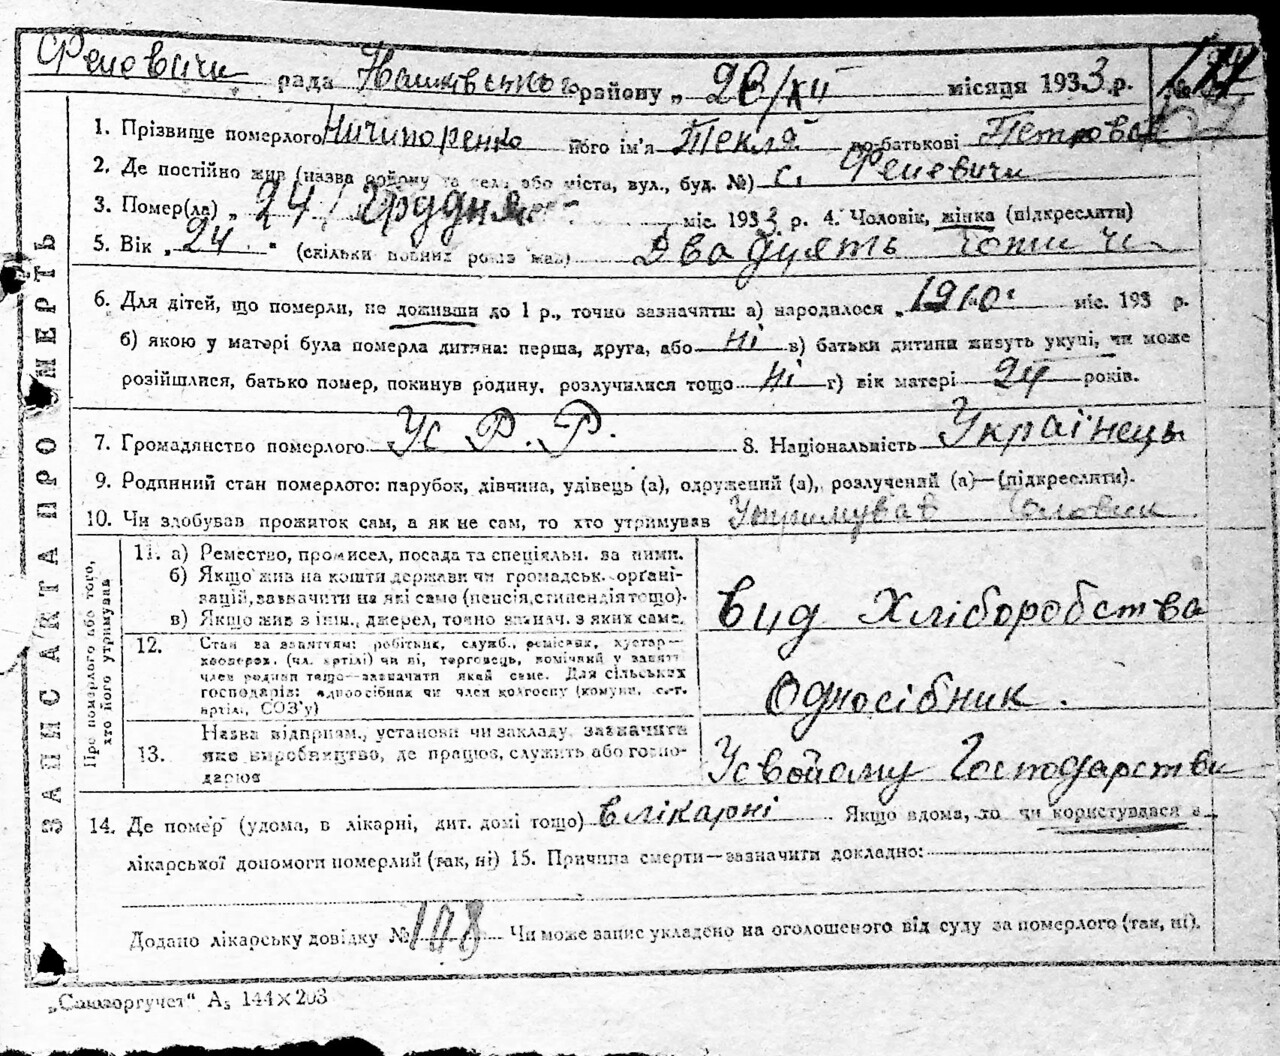 Феневичи рада Іванківського району „ 28/XII місяця 1933 р. №
1. Прізвище померлого Ничипоренко його ім'я Текля по-батькові Петровна
2. Де постійно жив (назва району та села або міста, вул., буд. №) с. Феневичи
3. Помер(ла) „ 24 / Грудня міс. 1933 р. 4. Чоловік, жінка (підкреслити)
5. Вік „ 24 " (скільки повних років жив) Двадцять Чотичи
6. Для дітей, що померли, не доживши до 1 р., точно зазначити: а) народилося „ 1910 міс. 193 р.
б) якою у матері була померла дитина: перша, друга, або ні в) батьки дитини живуть укупі, чи може
розійшлися, батько помер, покинув родину, розлучилися тощо ні г) вік матері 24 років.
7. Громадянство померлого УсРР. 8. Національність Українець
9. Родинний стан померлого: парубок, дівчина, удівець (а), одружений (а), розлучений (а)—(підкреслити).
10. Чи здобував прожиток сам, а як не сам, то хто утримував Утримував Чоловик
ЗАПИС АКТА ПРО СМЕРТЬ
Про померлого або того, хто його утримував
11. а) Ремество, промисел, посада та спеціяльн. за ними.
б) Якщо жив на кошти держави чи громадськ. органі-
зацій, зазначити на які саме (пенсія, стипендія тощо).
в) Якщо жив з інш., джерел, точно зазнач. з яких саме.
Вид Хліборобства
12. Стан за заняттям: робітник, служб., ремісник, кустар—
кооперов. (чл. артілі) чи ні, торговець, помічний у занятті
член родини тощо—зазначити який саме. Для сільських
господарів: одноосібник чи член колгоспу (комуни, с.-г.
артілі, СОЗ'у)
Односібник.
13. Назва відприєм., установи чи закладу, зазначити
яке виробництво, де працює, служить або госпо-
дарює
Усвойому Господарстви
14. Де помер (удома, в лікарні, дит. домі тощо) в лікарні. Якщо вдома, то чи користувався з
лікарської допомоги померлий (так, ні) 15. Причина смерти—зазначити докладно:
Додано лікарську довідку № 148 Чи може запис укладено на оголошеного від суду за померлого (так, ні).
„Союзоргучет" А₅ 144×203